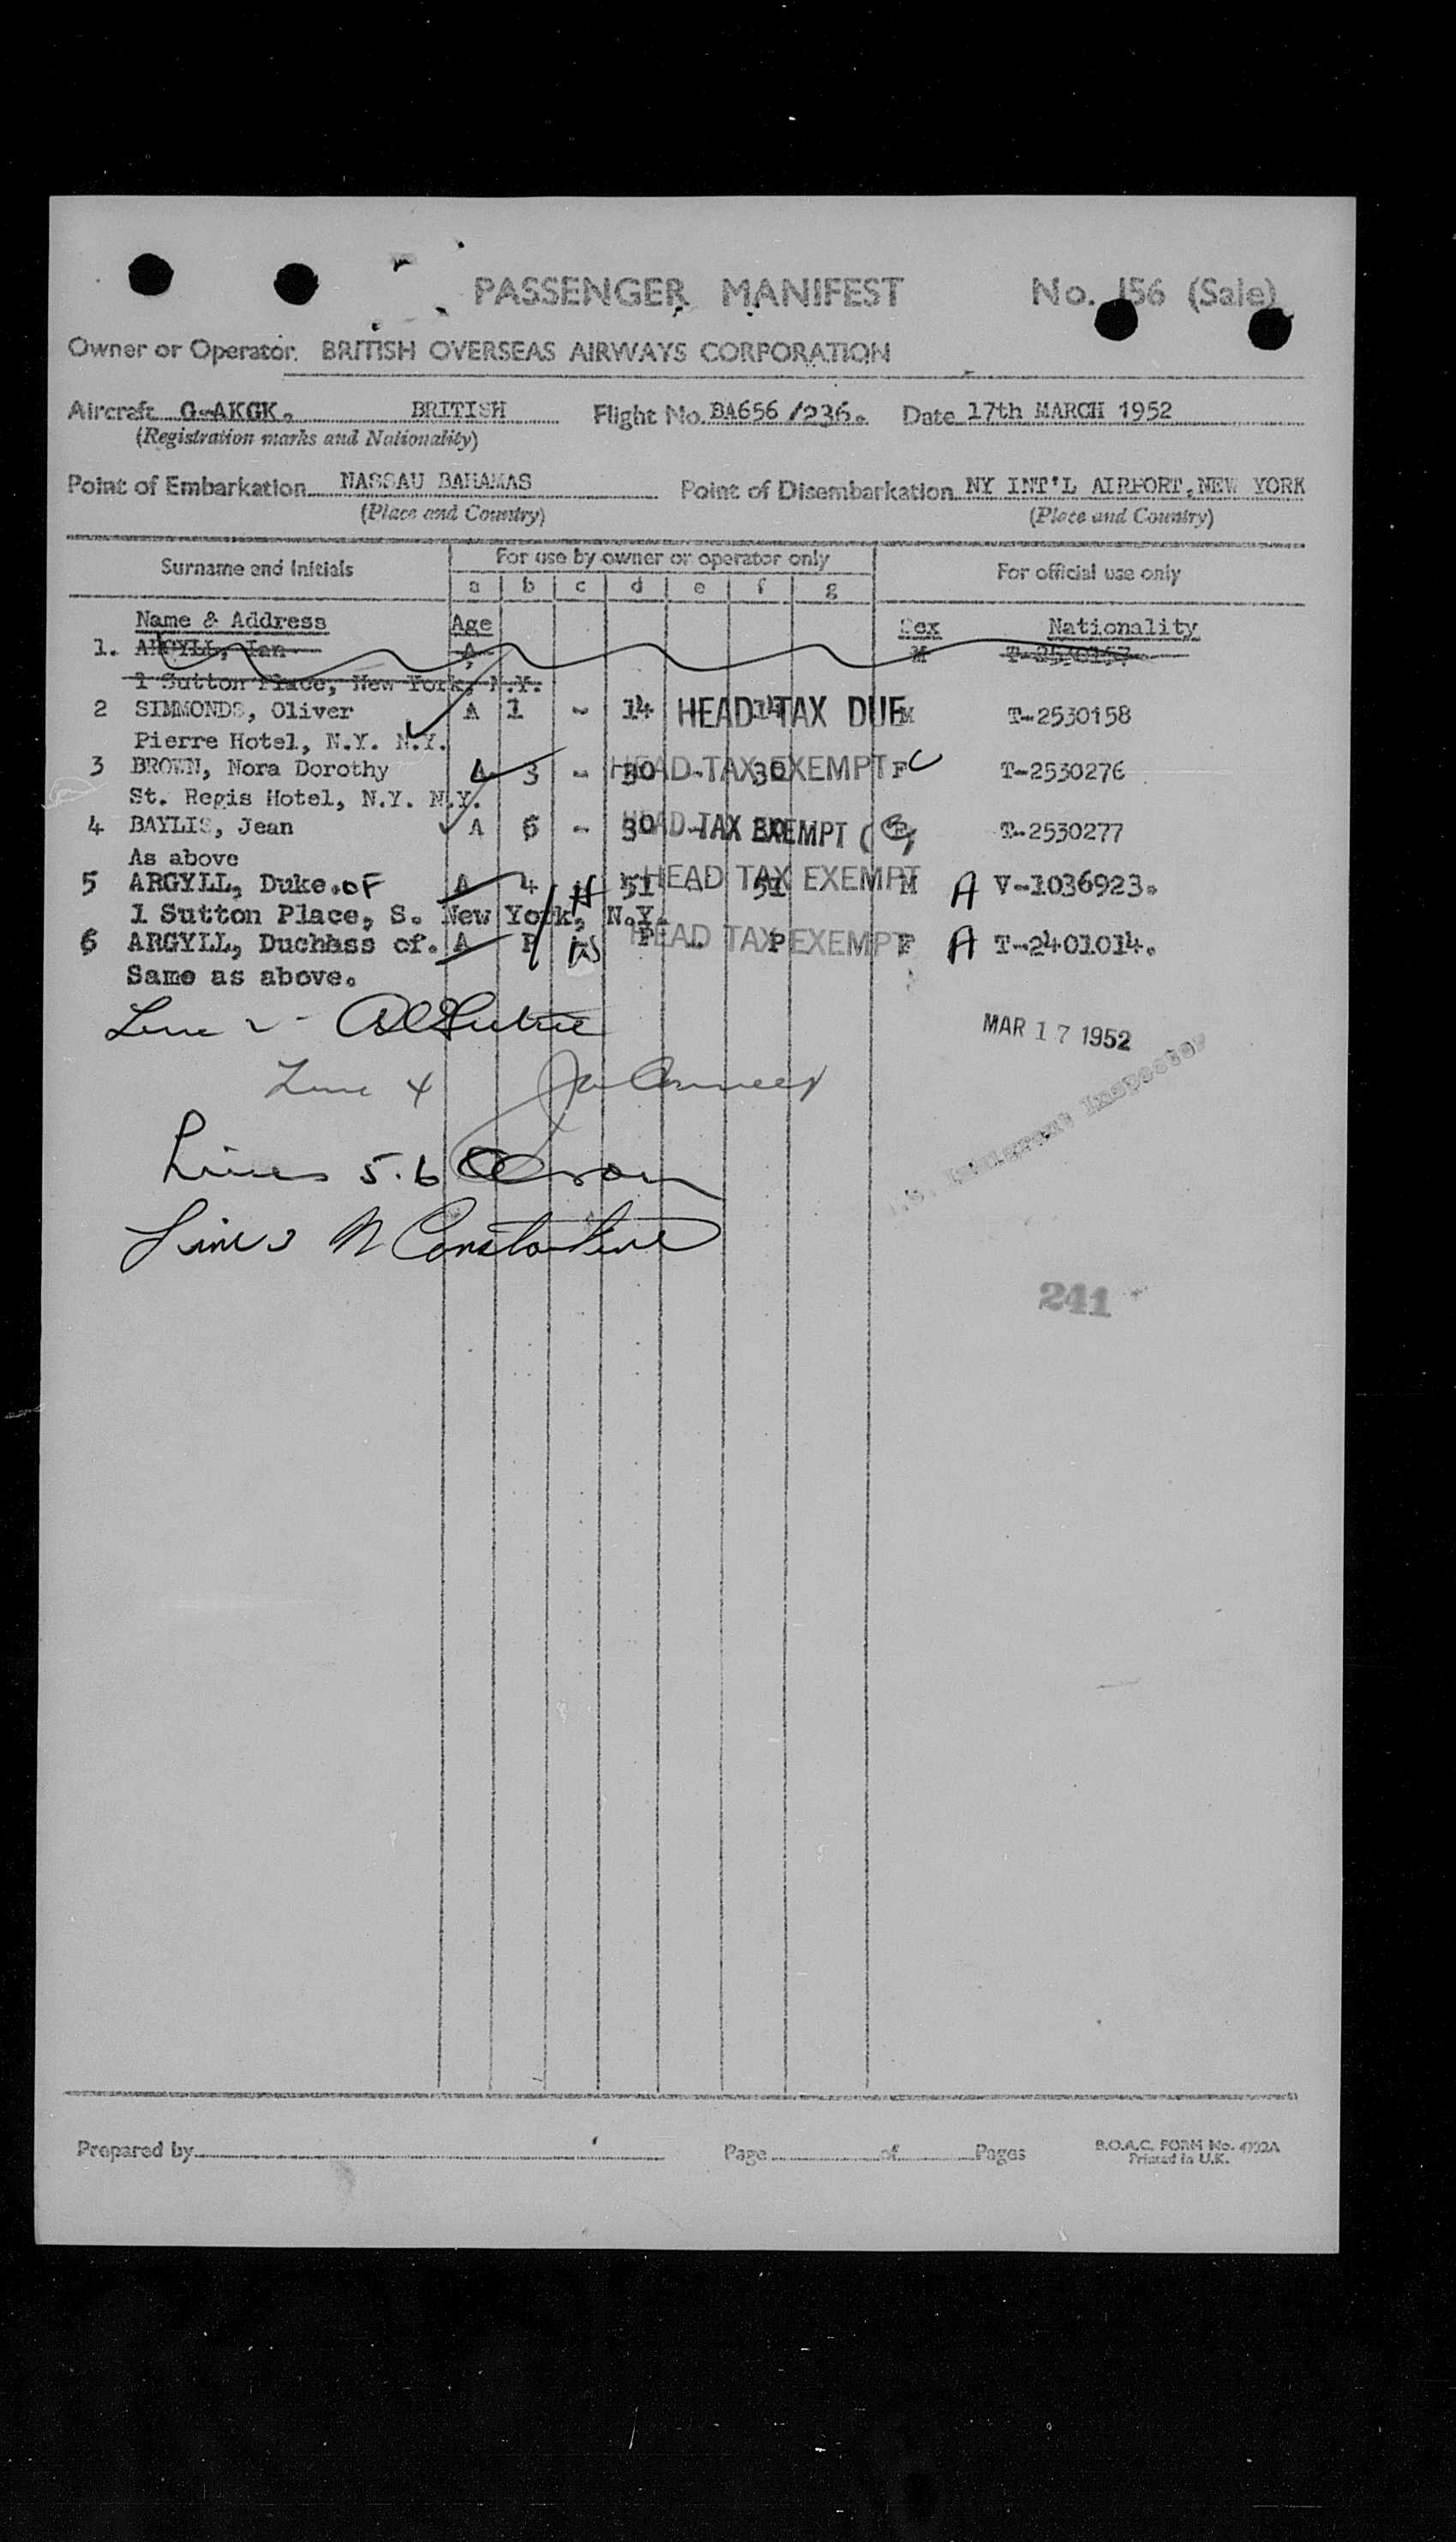 PASSENGER MANIFEST No. 156 (Sale)
Owner or Operator. BRITISH OVERSEAS AIRWAYS CORPORATION
Aircraft G-AKGK. BRITISH Flight No. BA656/236. Date 17th MARCH 1952
(Registration marks and Nationality)
Point of Embarkation NASSAU BAHAMAS Point of Disembarkation NY INT'L AIRPORT, NEW YORK
(Place and Country) (Place and Country)
Surname and Initials For use by owner or operator only For official use only
a b c d e f g
Name & Address Age Sex Nationality
1. ARGYLL, Ian A M
1 Sutton Place, New York, N.Y.
2 SIMMONDS, Oliver A 1 - 14 HEAD TAX DUE 14 M T-2530158
Pierre Hotel, N.Y. N.Y.
3 BROWN, Nora Dorothy A 3 - 30 - 30 HEAD TAX EXEMPT F C T-2530276
St. Regis Hotel, N.Y. N.Y.
4 BAYLIS, Jean A 6 - 30 - 30 HEAD TAX EXEMPT T-2530277
As above
5 ARGYLL, Duke.OF A 4 51 - 51 HEAD TAX EXEMPT M A V-1036923.
1 Sutton Place, S. New York, N.Y.
6 ARGYLL, Duchass of. A P P - P HEAD TAX EXEMPT F A T-2401014.
Same as above.
Line 2 -
MAR 17 1952
Line 4
Immigrant Inspector
Lines 5.6
Line 3 N Constantine
241
Prepared by Page of Pages B.O.A.C. FORM No. 4732A
Printed in U.K.